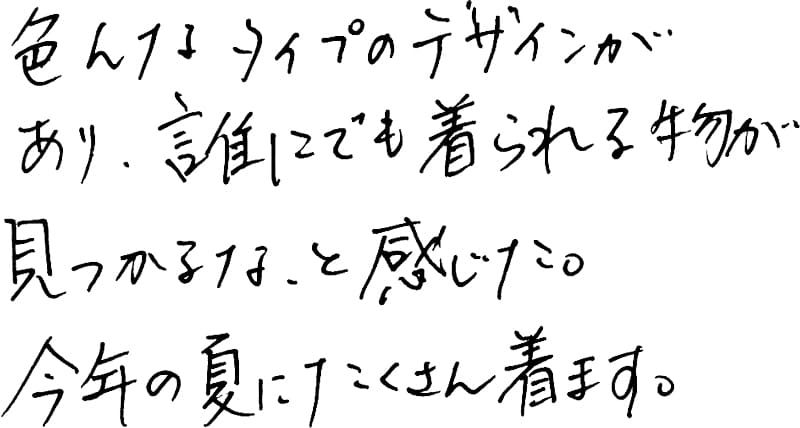 色んなタイプのデザインが
あり、誰にでも着られる物が
見つかるな、と感じた。
今年の夏にたくさん着ます。